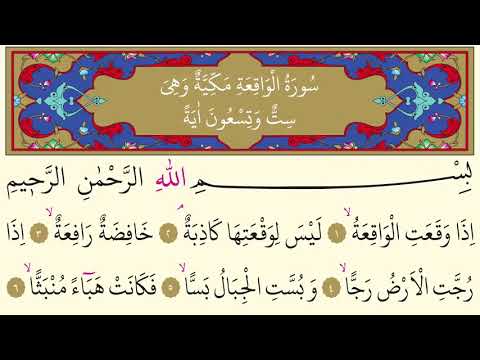 سُورَةُ الْوَاقِعَةِ مَكِّيَّةٌ وَهِيَ
سِتٌّ وَتِسْعُونَ اٰيَةً
بِسْمِ اللهِ الرَّحْمٰنِ الرَّحٖيمِ
اِذَا وَقَعَتِ الْوَاقِعَةُۙ ﴿١﴾ لَيْسَ لِوَقْعَتِهَا كَاذِبَةٌۢ ﴿٢﴾ خَافِضَةٌ رَافِعَةٌۙ ﴿٣﴾ اِذَا
رُجَّتِ الْاَرْضُ رَجًّاۙ ﴿٤﴾ وَبُسَّتِ الْجِبَالُ بَسًّاۙ ﴿٥﴾ فَكَانَتْ هَبَٓاءً مُنْبَثًّاۙ ﴿٦﴾